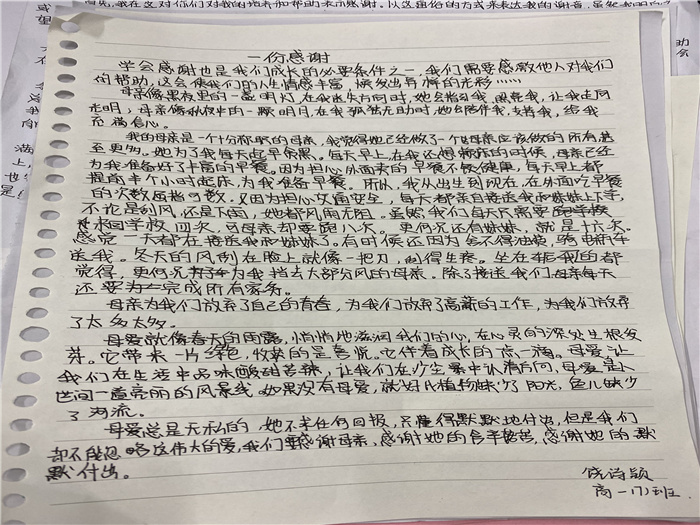 一份感谢
学会感谢也是我们成长的必要条件之一，我们需要感激他人对我们
的帮助，这会使我们的人生情感丰富，焕发出异样的光彩……
母亲像黑夜里的一盏明灯，在我迷失方向时，她会指引我，照亮我，让我走向
光明，母亲像秋夜中的一颗明月，在我孤苦无助时，她会陪伴我，支持我，给我
充满信心。
我的母亲是一个十分称职的母亲，我觉得她已经做了一个母亲应该做的所有甚
至更多。她为了我每天起早贪黑。每天早上，在我还想赖床的时候，母亲已经
为我准备好了丰富的早餐。因为担心外面卖的早餐不够健康，每天早上都
提前半个小时起床，为我准备早餐。所以，我从出生到现在，在外面吃早餐
的次数屈指可数。又因为担心交通安全，每天都亲自接送我和妹妹上下学，
不论是刮风，还是下雨，她都风雨无阻。虽然我们每天只需要
来回学校四次，可母亲却要跑八次。更何况还有妹妹，就是十六次。
感觉一天都在接送我和妹妹了。有时候还因为舍不得油钱，骑电动车
送我。冬天的风刮在脸上就像一把刀，刮得生寒。坐在后座的都
觉得，更何况为我挡去大部分风的母亲。除了接送我们，母亲每天
还要完成所有家务。
母亲为我们放弃了自己的青春，为我们放弃了高薪的工作，为我们放弃
了太多太多。
母爱就像春天的雨露，悄悄地滋润我们的心，在心灵的深处生根发
芽。它带来一片绿色，收获的是喜悦。它伴着成长的点一滴。母爱让
我们在生活中品味酸甜苦辣，让我们在沙尘暴中认清方向，母爱是人
世间一道亮丽的风景线。如果没有母爱，就好比植物缺少了阳光，鱼儿缺少
了河流。
母爱总是无私的，她不求任何回报，只懂得默默地付出，但是我们
却不能忽略这伟大的爱，我们要感谢母亲，感谢她的含辛茹苦，感谢她的默
默付出。
饶诗颖
高一(7)班